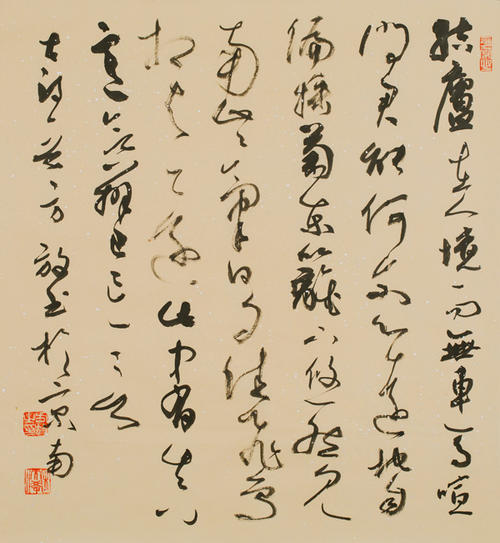 結廬在人境而無車馬喧
問君能何爾心遠地自
偏採菊東籬下悠然見
南山々氣日夕佳飛鳥
相与還此中有真
意欲辨已忘
古詩一首方放书於京南